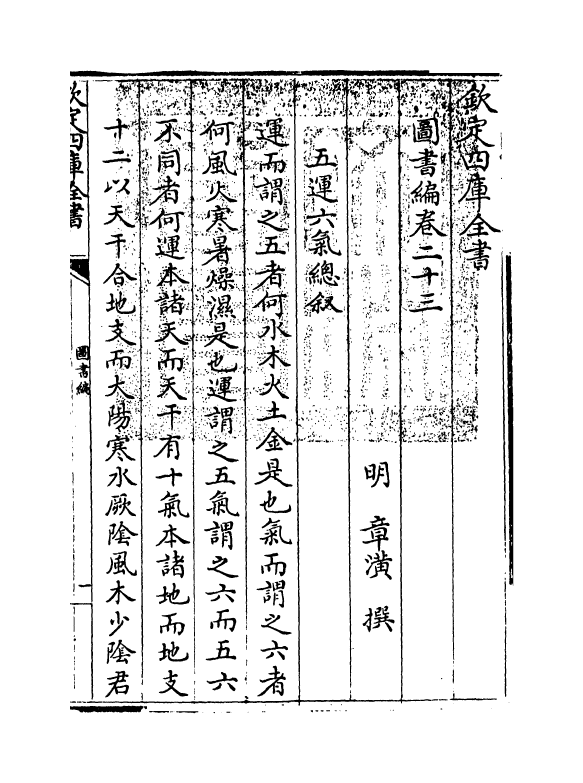 欽定四庫全書
圖書編卷二十三
明　章潢　撰
五運六氣總叙
運而謂之五者何水木火土金是也氣而謂之六者
何風火寒暑燥濕是也運謂之五氣謂之六而五六
不同者何運本諸天而天干有十氣本諸地而地支
十二以天干合地支而大陽寒水厥陰風木少陰君
欽定四庫全書
圖書編
一